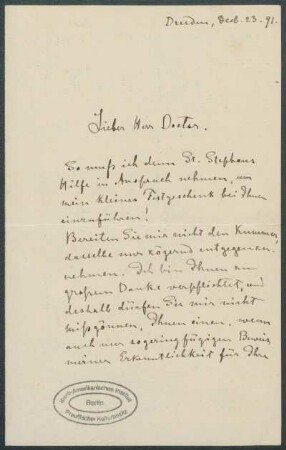 Dresden, Decb. 23. 91.
Lieber Herr Doctor.
So muß ich denn St. Stephans
Hilfe in Anspruch nehmen, um
mein kleines Festgeschenk bei Ihnen
einzuführen!
Bereiten Sie mir nicht den Kummer,
dasselbe nur zögernd entgegenzu-
nehmen. Ich bin Ihnen zu
großem Danke verpflichtet, und
deshalb dürfen Sie mir nicht
mißgönnen, Ihnen einen, wenn
auch nur so geringfügigen Beweis
meiner Erkenntlichkeit für Ihre
Ibero-Amerikanisches Institut
Berlin
Preußischer Kulturbesitz